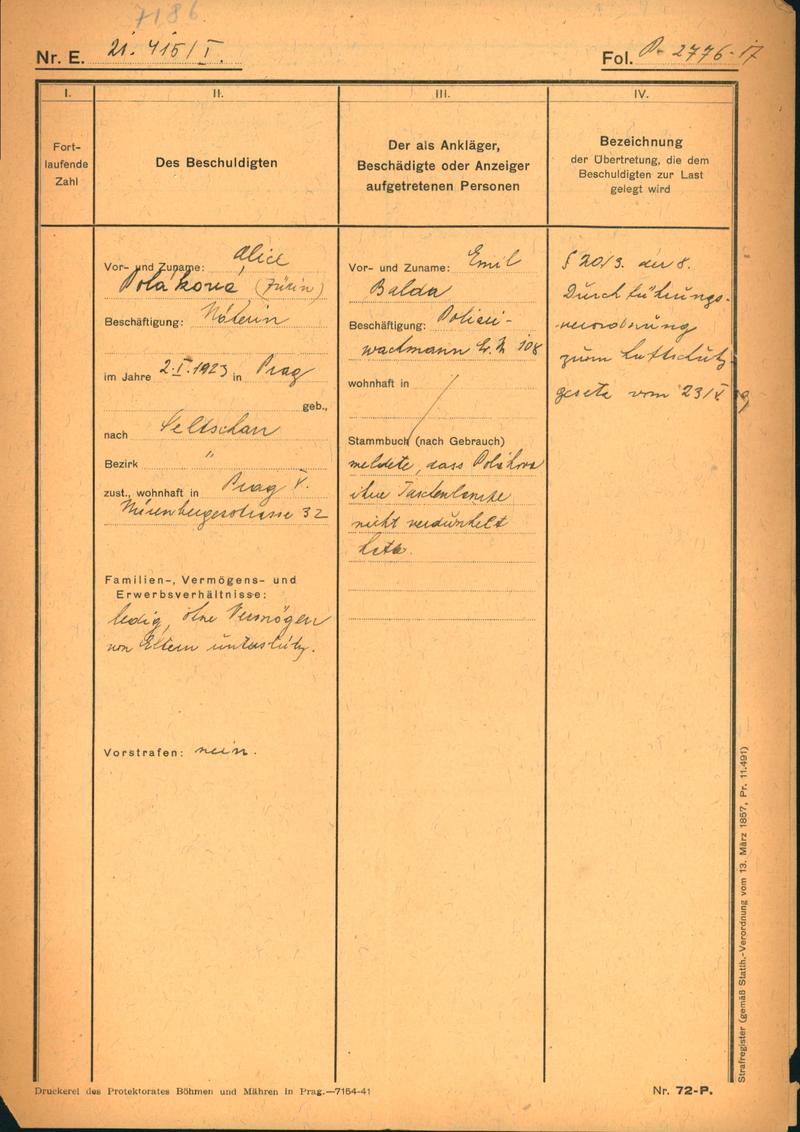 7186
Nr. E. 21.415/I.
Fol. P- 2776-17
I.
II.
III.
IV.
Fort-
laufende
Zahl
Des Beschuldigten
Der als Ankläger,
Beschädigte oder Anzeiger
aufgetretenen Personen
Bezeichnung
der Übertretung, die dem
Beschuldigten zur Last
gelegt wird
Vor- und Zuname: Alice
Poláková (Jüdin)
Beschäftigung: Näherin
im Jahre 2.I.1923 in Prag
geb.,
nach Seltschan
Bezirk "
zust., wohnhaft in Prag V.
Nürnbergerstrasse 32
Familien-, Vermögens- und
Erwerbsverhältnisse:
ledig, ohne Vermögen
von Eltern unterstützt.
Vorstrafen: nein.
Vor- und Zuname: Emil
Balda
Beschäftigung: Polizei-
wachmann 108
wohnhaft in /
Stammbuch (nach Gebrauch)
meldete, dass Poláková
ihre Taschenlampe
nicht verdunkelt
hatte.
§ 20/3. der 8.
Durchführungs-
verordnung
zum Luftschutz-
gesetz vom 23/V 39
Strafregister (gemäß Statth.-Verordnung vom 13. März 1857, Pr. 11.491)
Druckerei des Protektorates Böhmen und Mähren in Prag.—7154-41
Nr. 72-P.